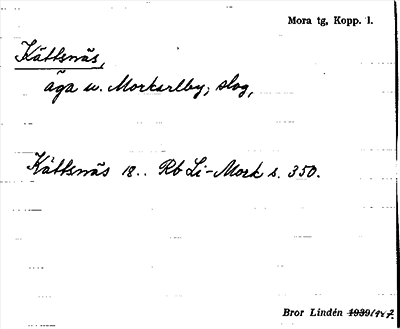 Mora tg, Kopp. l.
Kättsnäs,
äga u. Morkarlby, slog,
Kättsnäs 18.. Rb Li-Mork s. 350.
Bror Lindén 1939